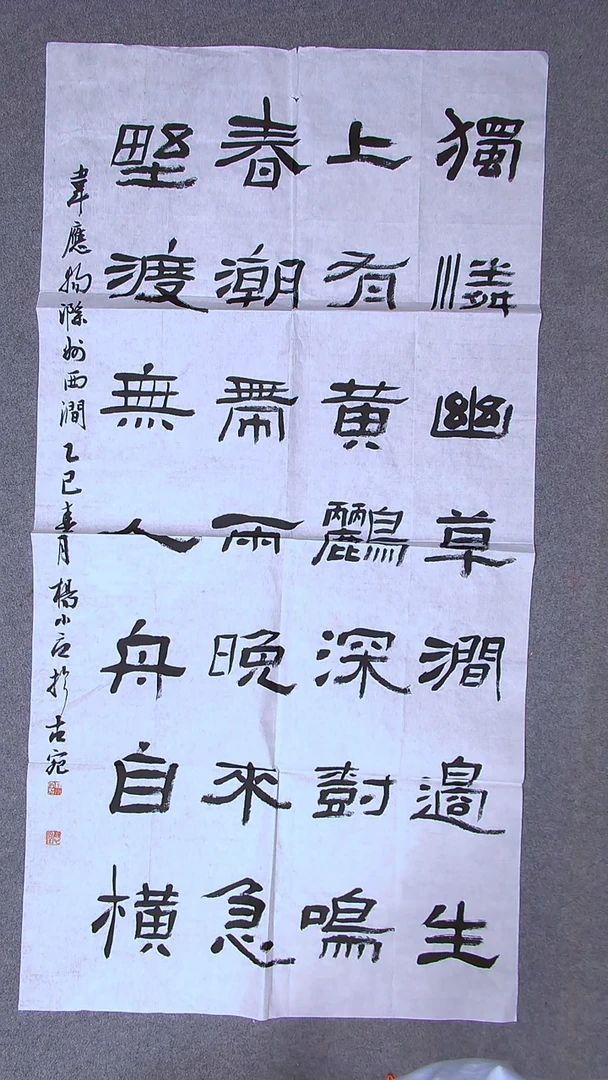 獨憐幽草澗邊生
上有黃鸝深尌鳴
春潮帶雨晚來急
野渡無人舟自橫
韋應物滁州西澗乙巳春月楊小石於古宛